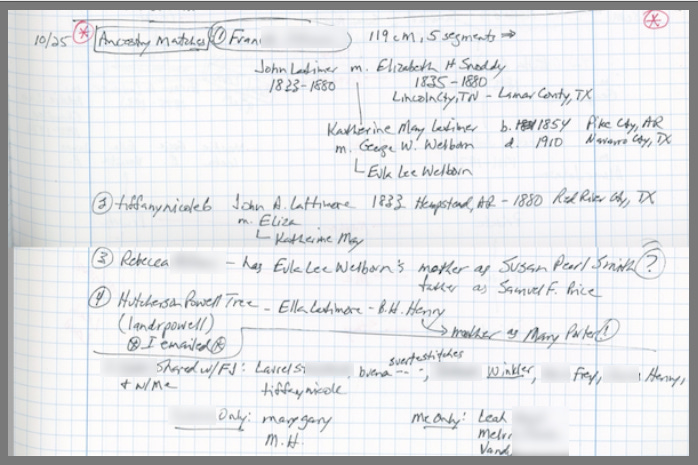 10/25 Ancestry Matches ① Fran 119 cM, 5 segments ⇒
John Latimer m. Elizabeth H Snoddy
1833-1880 1835-1880
Lincoln Cty, TN - Lamar County, TX
Katherine May Latimer b. 1854 Pike Cty, AR
m. George W. Welborn d. 1910 Navarro Cty, TX
Evla Lee Welborn
② tiffanynicoleb John A. Lattimore 1833 Hempstead, AR - 1880 Red River Cty, TX
m. Eliza
Katherine May
③ Rebecca - has Evla Lee Welborn's mother as Susan Pearl Smith ?
father as Samuel F. Price
④ Hutcherson Powell Tree - Ella Latimore - B.H. Henry
(landrpowell) mother as Mary Porter !
I emailed
Shared w/FJ: Laurel buena Winkler, Frey, Henry,
& w/me tiffanynicole
Only: marygary Me Only: Leah
M.H.